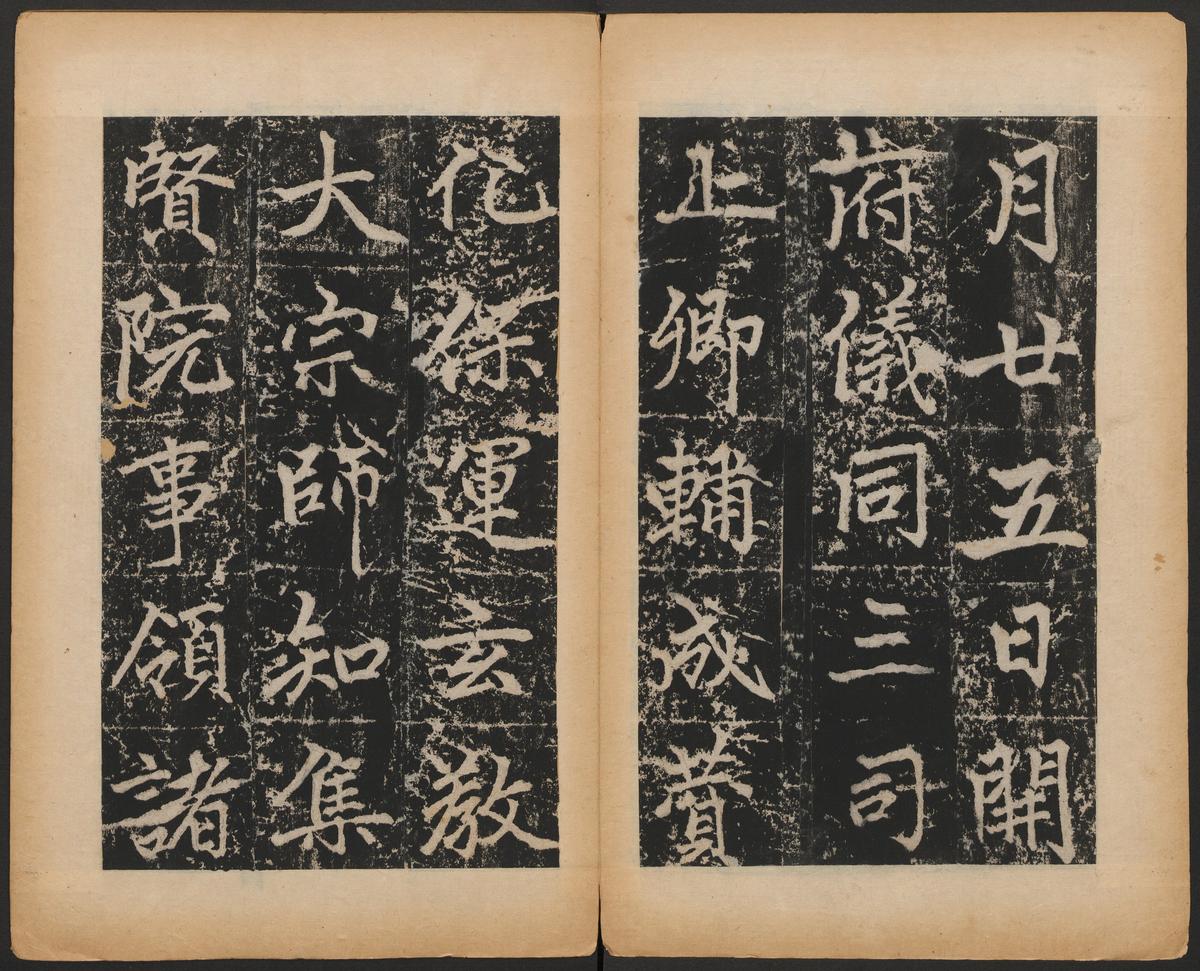 月廿五日開
府儀同三司
上卿輔成贊
化保運玄教
大宗師知集
賢院事領諸